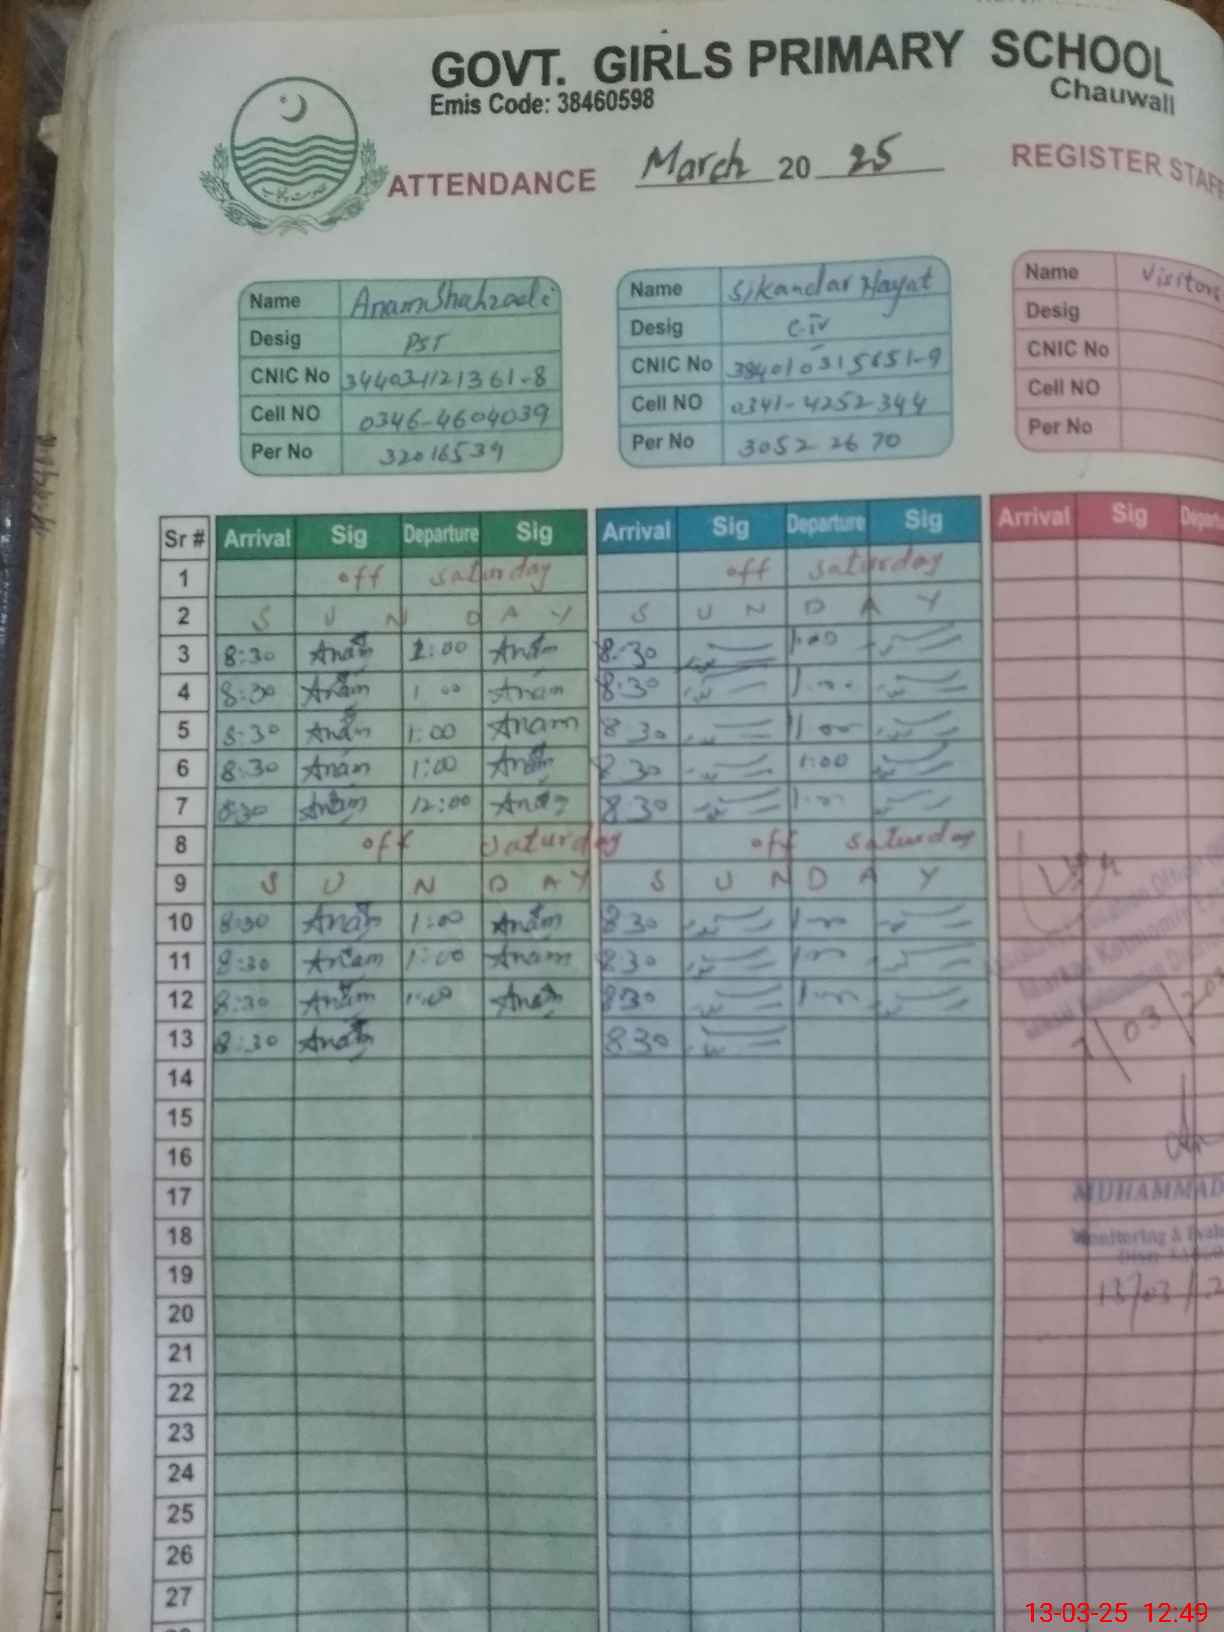 GOVT. GIRLS PRIMARY SCHOOL
Emis Code: 38460598
Chauwali
ATTENDANCE March 2025 REGISTER STAFF
Name Anam Shahzadi
Desig PST
CNIC No
Cell NO 0346-4604039
Per No 32016539
Name Sikandar Hayat
Desig C-IV
CNIC No
Cell NO 0341-4252344
Per No 30522670
Name Visitors
Desig
CNIC No
Cell NO
Per No
Sr # Arrival Sig Departure Sig Arrival Sig Departure Sig Arrival Sig
1 off saturday off saturday
2 S U N D A Y S U N D A Y
3 8:30 Anam 1:00 Anam 8:30 1:00
4 8:30 Anam 1 00 Anam 8:30
5 8:30 Anam 1:00 Anam 8 30 1 00
6 8:30 Anam 1:00 Anam 8 30 1:00
7 830 Anam 12:00 Anam 8:30
8 off saturday off saturday
9 S U N D A Y S U N D A Y
10 8:30 Anam 1:00 Anam 830
11 8:30 Anam 1:00 Anam 830
12 8:30 Anam 1:00 Anam 830
13 8:30 Anam 830
14
15
16
17
MUHAMMAD
18
Monitoring &
19
13/03/2
20
21
22
23
24
25
26
27
13-03-25 12:49